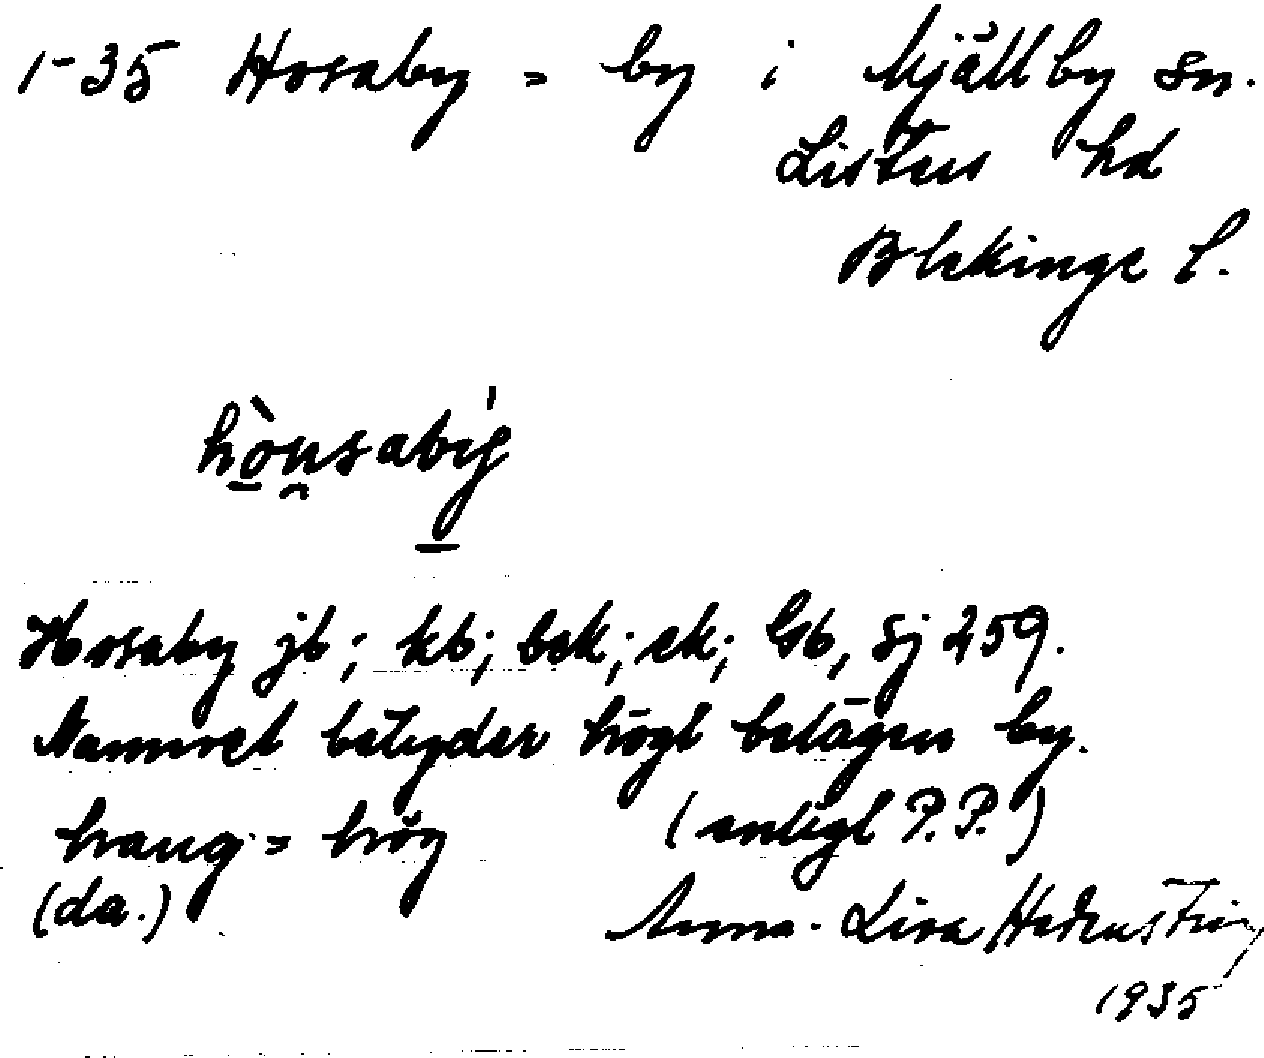 1-35 Hosaby = by i Mjällby sn.
Listers hd
Blekinge l.
hòu̯sabý
Hosaby jb; kb; bsk; sk; Gb, Sj 259.
Namnet betyder högt belägen by.
haug = hög (enligt P.P.)
(da.) Anna-Lisa Hedenström
1935